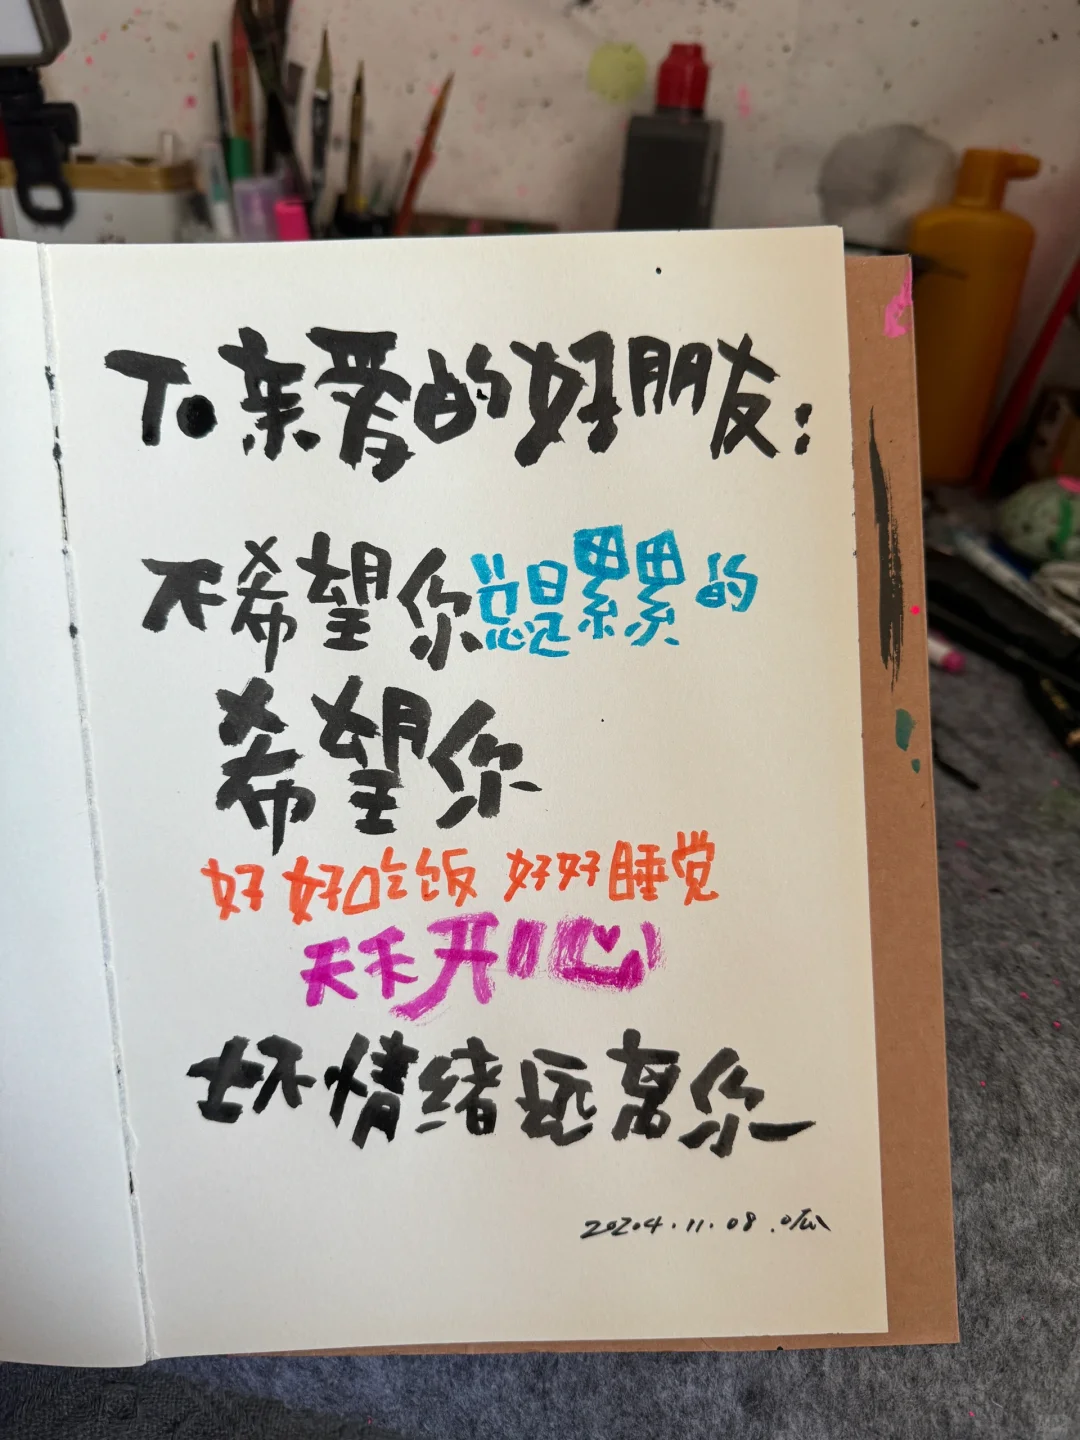 To 亲爱的好朋友:
不希望你总是累累的
希望你
好好吃饭 好好睡觉
天天开心
坏情绪远离你
2024.11.08 .呱